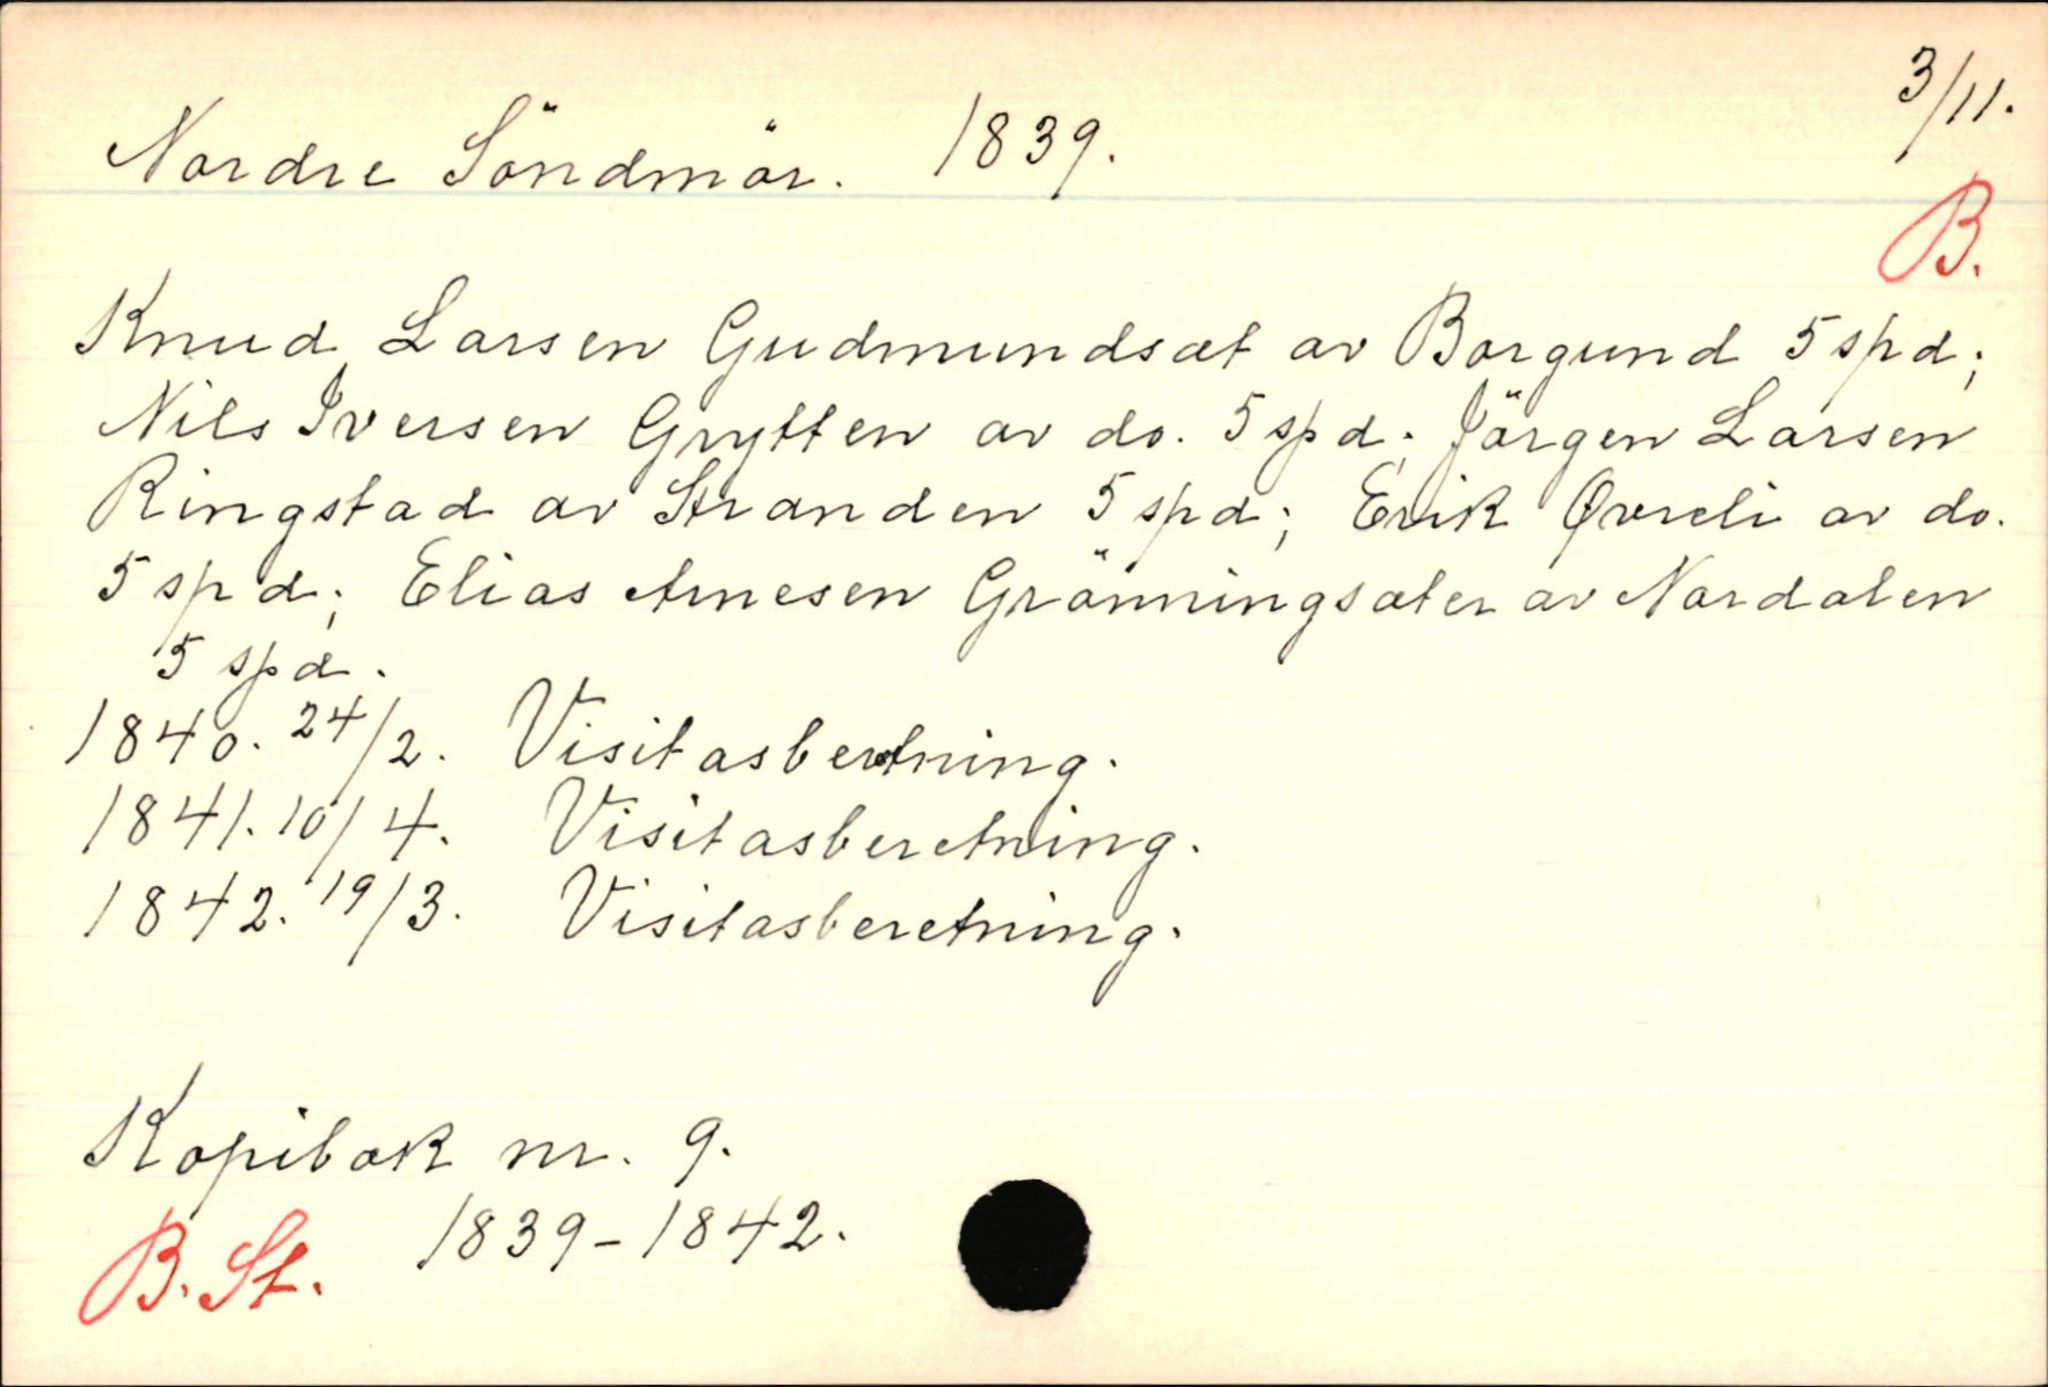 3/11.
Nordre Söndmör. 1839.
B.
Knud Larsen Gudmundsæt av Borgund 5 spd;
Nils Iversen Grytten av do. 5 spd; Jörgen Larsen
Ringstad av Stranden 5 spd; Erik Øvreli av do.
5 spd; Elias Arnesen Grönningsæter av Nordalen
5 spd.
1840. 24/2. Visitasberetning.
1841. 10/4. Visitasberetning.
1842. 19/3. Visitasberetning.
Kopibok nr. 9.
B. St. 1839-1842.